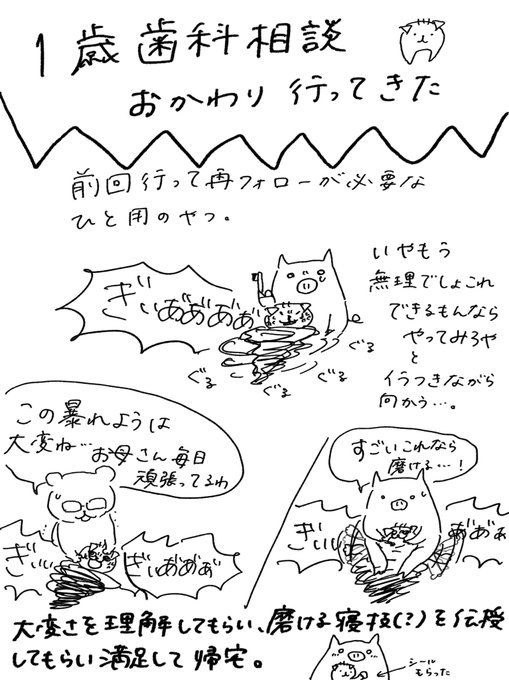 1歳歯科相談
おかわり行ってきた
前回行って再フォローが必要な
ひと用のやつ。
ぎぃあ゙あ゙あ゙ぁ゙
いやもう
無理でしょこれ
できるもんなら
やってみろや
と
イラつきながら
向かう…。
ぐる
ぐる
ぐる
ぐる
この暴れようは
大変ね…
お母さん毎日
頑張ってるわ
ぎぃ
ぎぃあ゙あ゙ぁ゙
すごいこれなら
磨ける…!
ぎぃぃ
あ゙あ゙ぁ
大変さを理解してもらい、磨ける寝技(?)を伝授
してもらい満足して帰宅。
シール
もらった